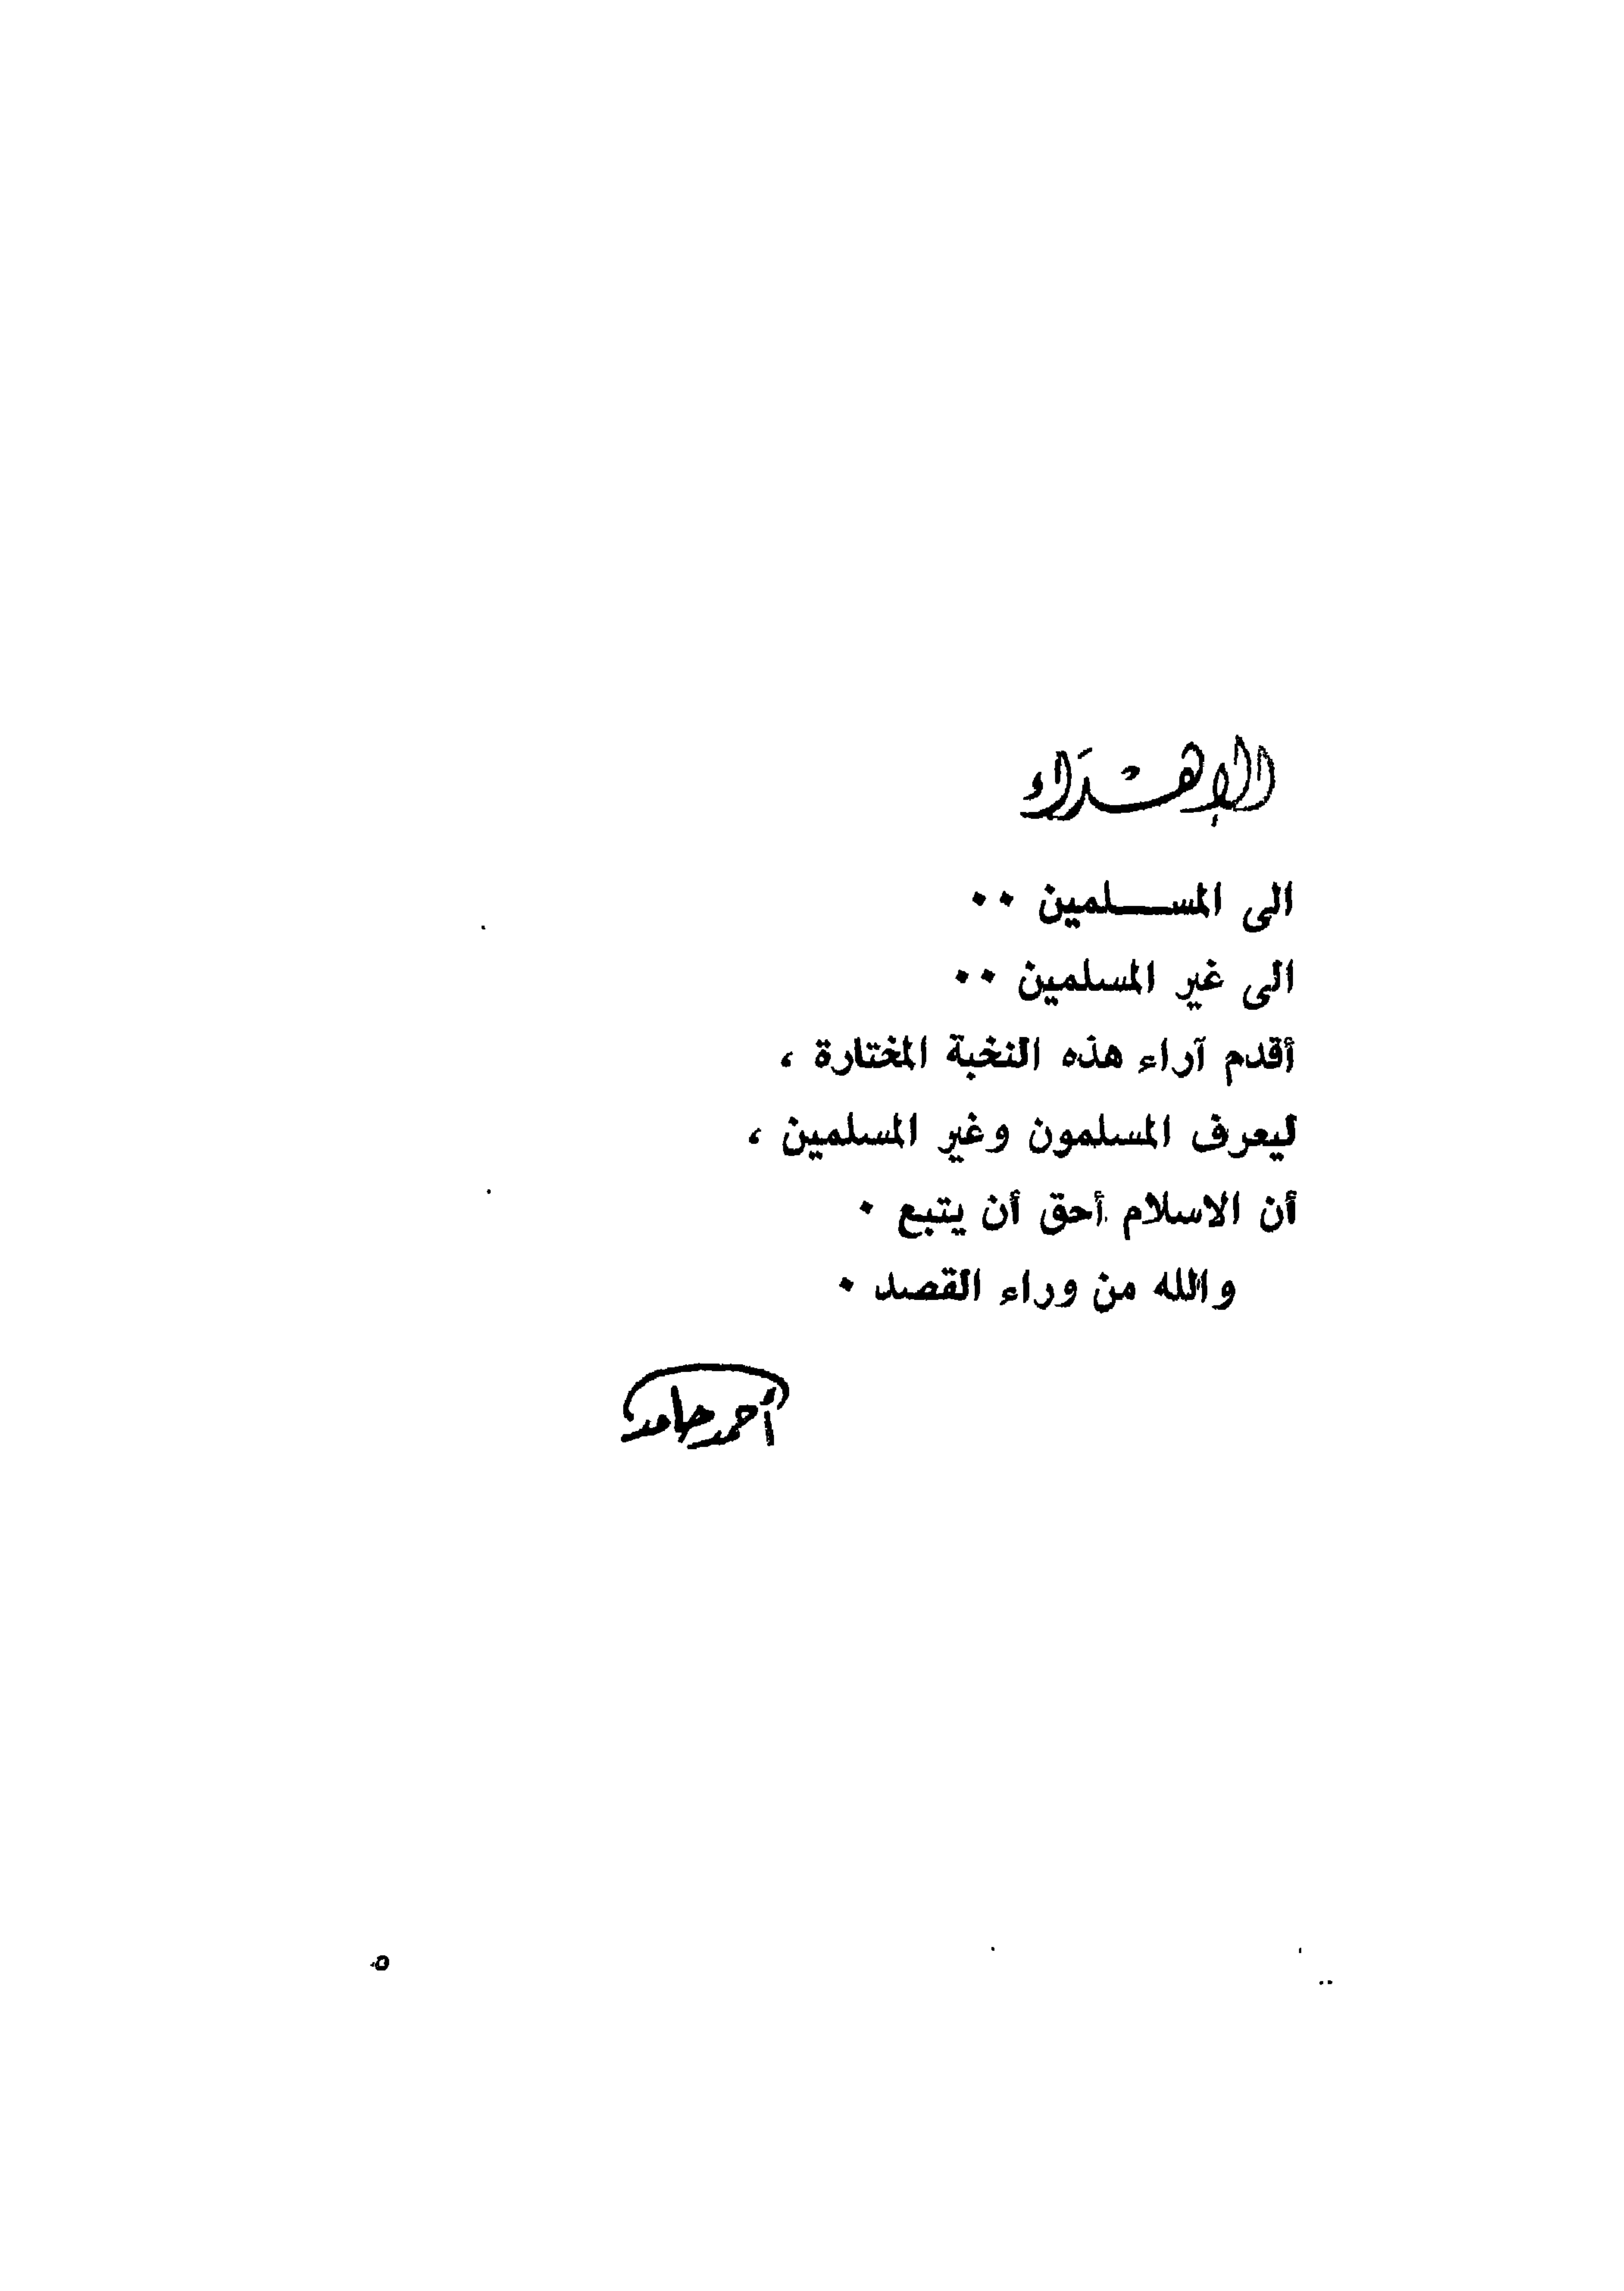 الإهداء
الى المسلمين ٠٠
الى غير المسلمين ٠٠
أقدم آراء هذه النخبة المختارة ،
ليعرف المسلمون وغير المسلمين ،
أن الاسلام أحق أن يتبع ٠
والله من وراء القصد ٠
أحمد حامد
٥